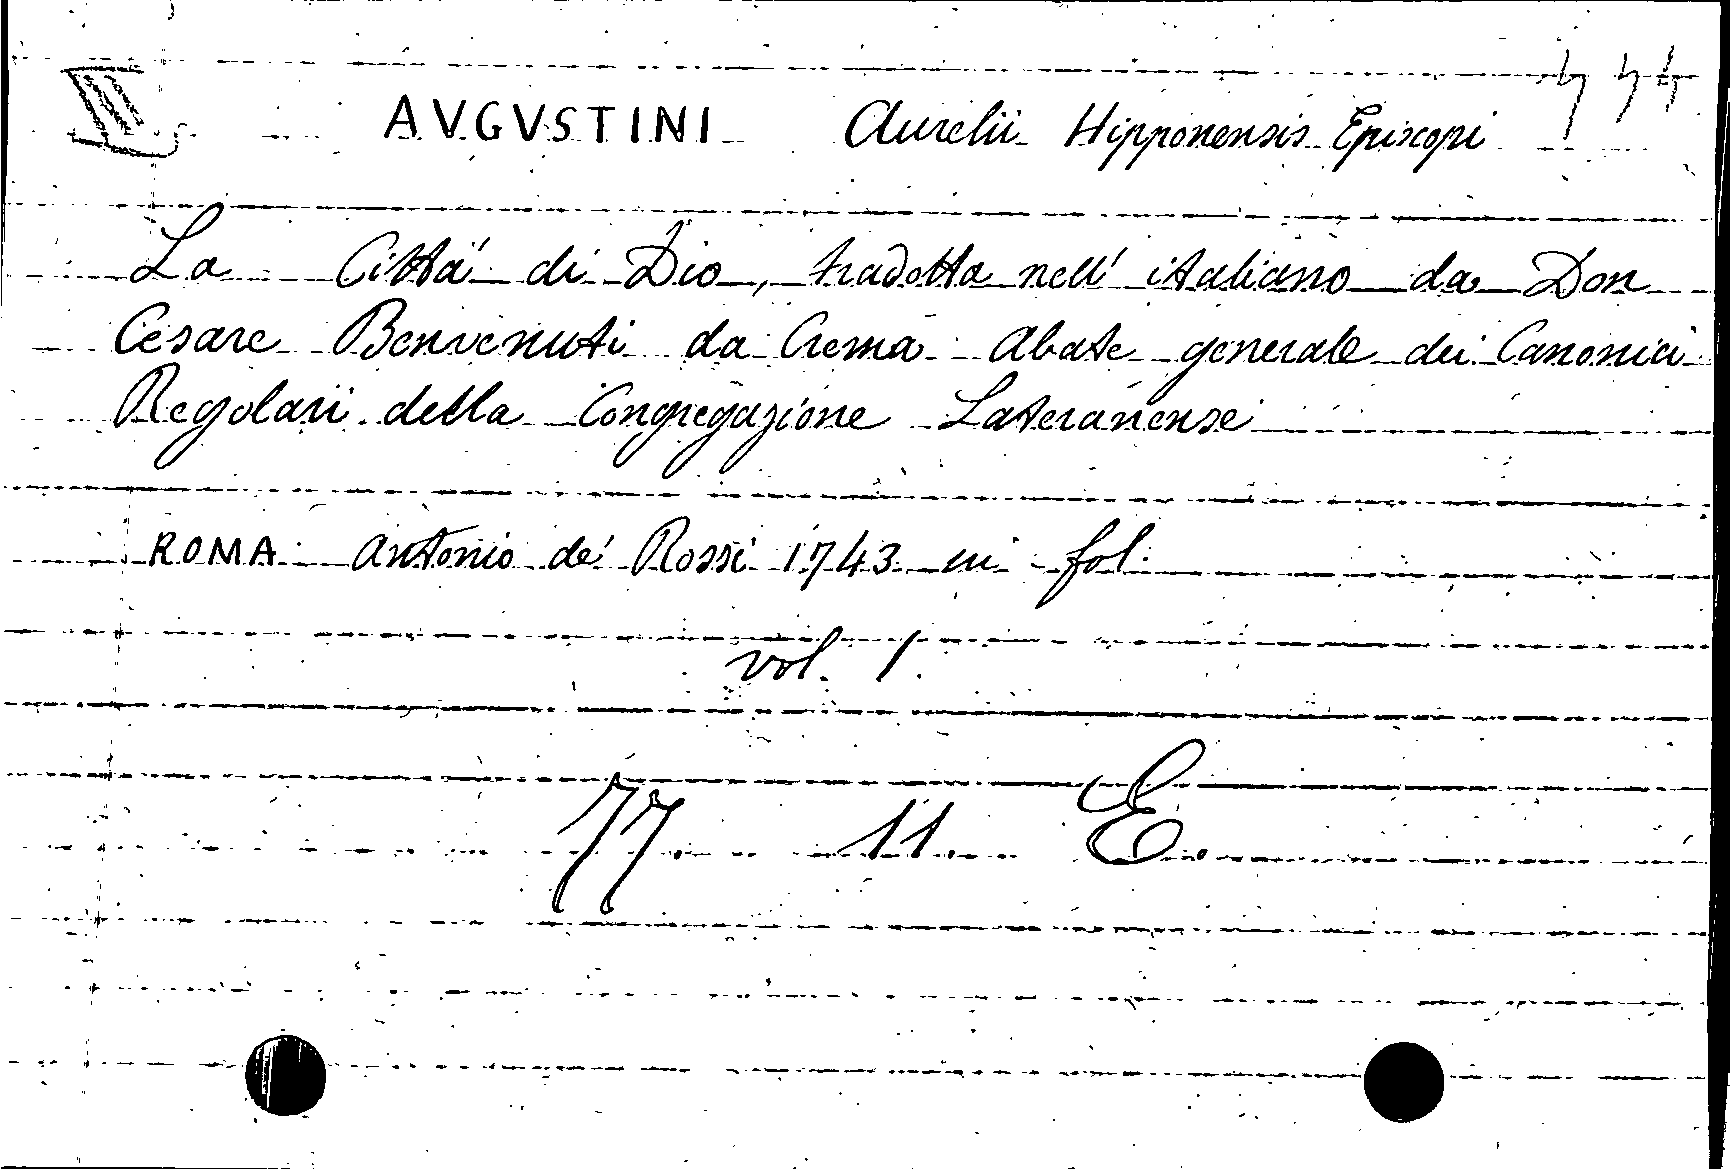 III AVGVSTINI Aurelii Hipponensis Episcopi
La Cittá di Dio, tradotta nell' italiano da Don
Cesare Benvenuti da Crema Abate generale dei Canonici
Regolari della Congregazione Lateranense
ROMA Antonio de' Rossi 1743 in fol.
vol. 1.
77 11 E